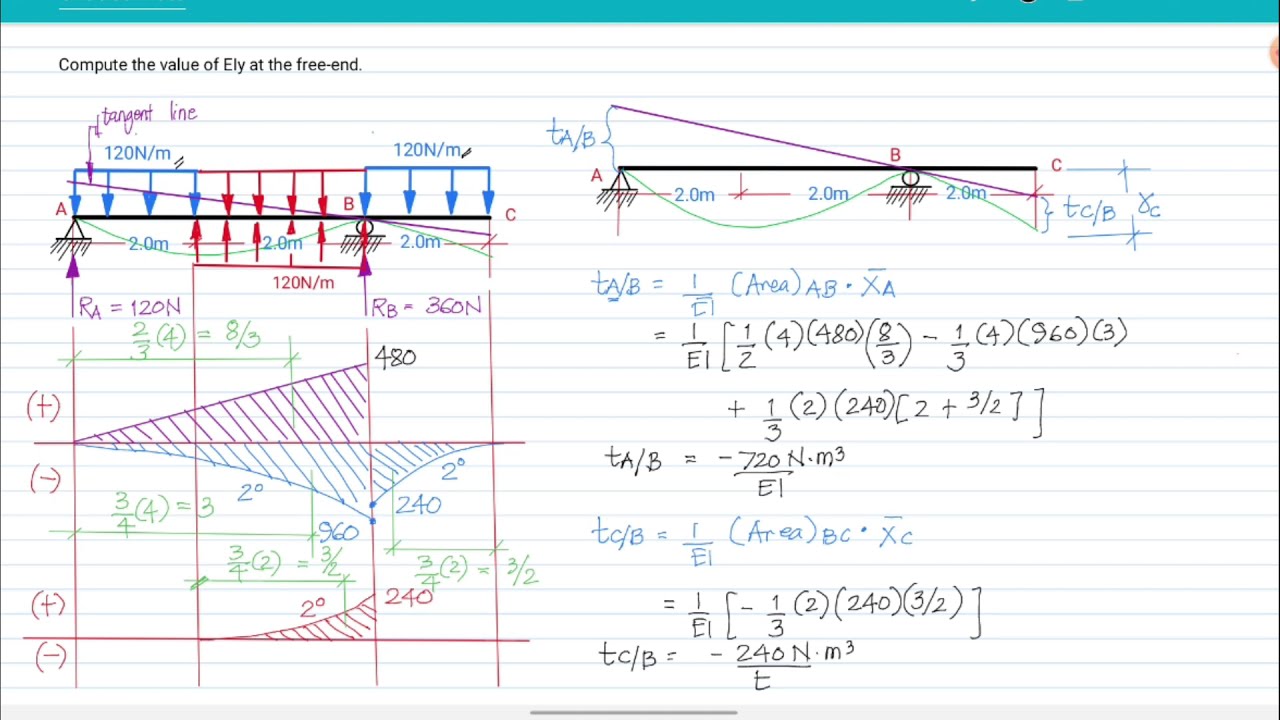 Compute the value of EIy at the free-end.
tangent line
120N/m
120N/m
A
B
C
2.0m
2.0m
2.0m
120N/m
RA = 120N
RB = 360N
2/3 (4) = 8/3
480
(+)
(-)
2°
2°
3/4 (4) = 3
240
960
3/4 (2) = 3/2
3/4 (2) = 3/2
(+)
2°
240
(-)
tA/B
A
B
C
2.0m
2.0m
2.0m
tC/B
tA/B = 1/EI (Area)AB · X̄A
= 1/EI [ 1/2 (4)(480)(8/3) - 1/3 (4)(960)(3)
+ 1/3 (2)(240)[2 + 3/2] ]
tA/B = -720 N·m³/EI
tC/B = 1/EI (Area)BC · X̄C
= 1/EI [ - 1/3 (2)(240)(3/2) ]
tC/B = - 240 N·m³/t